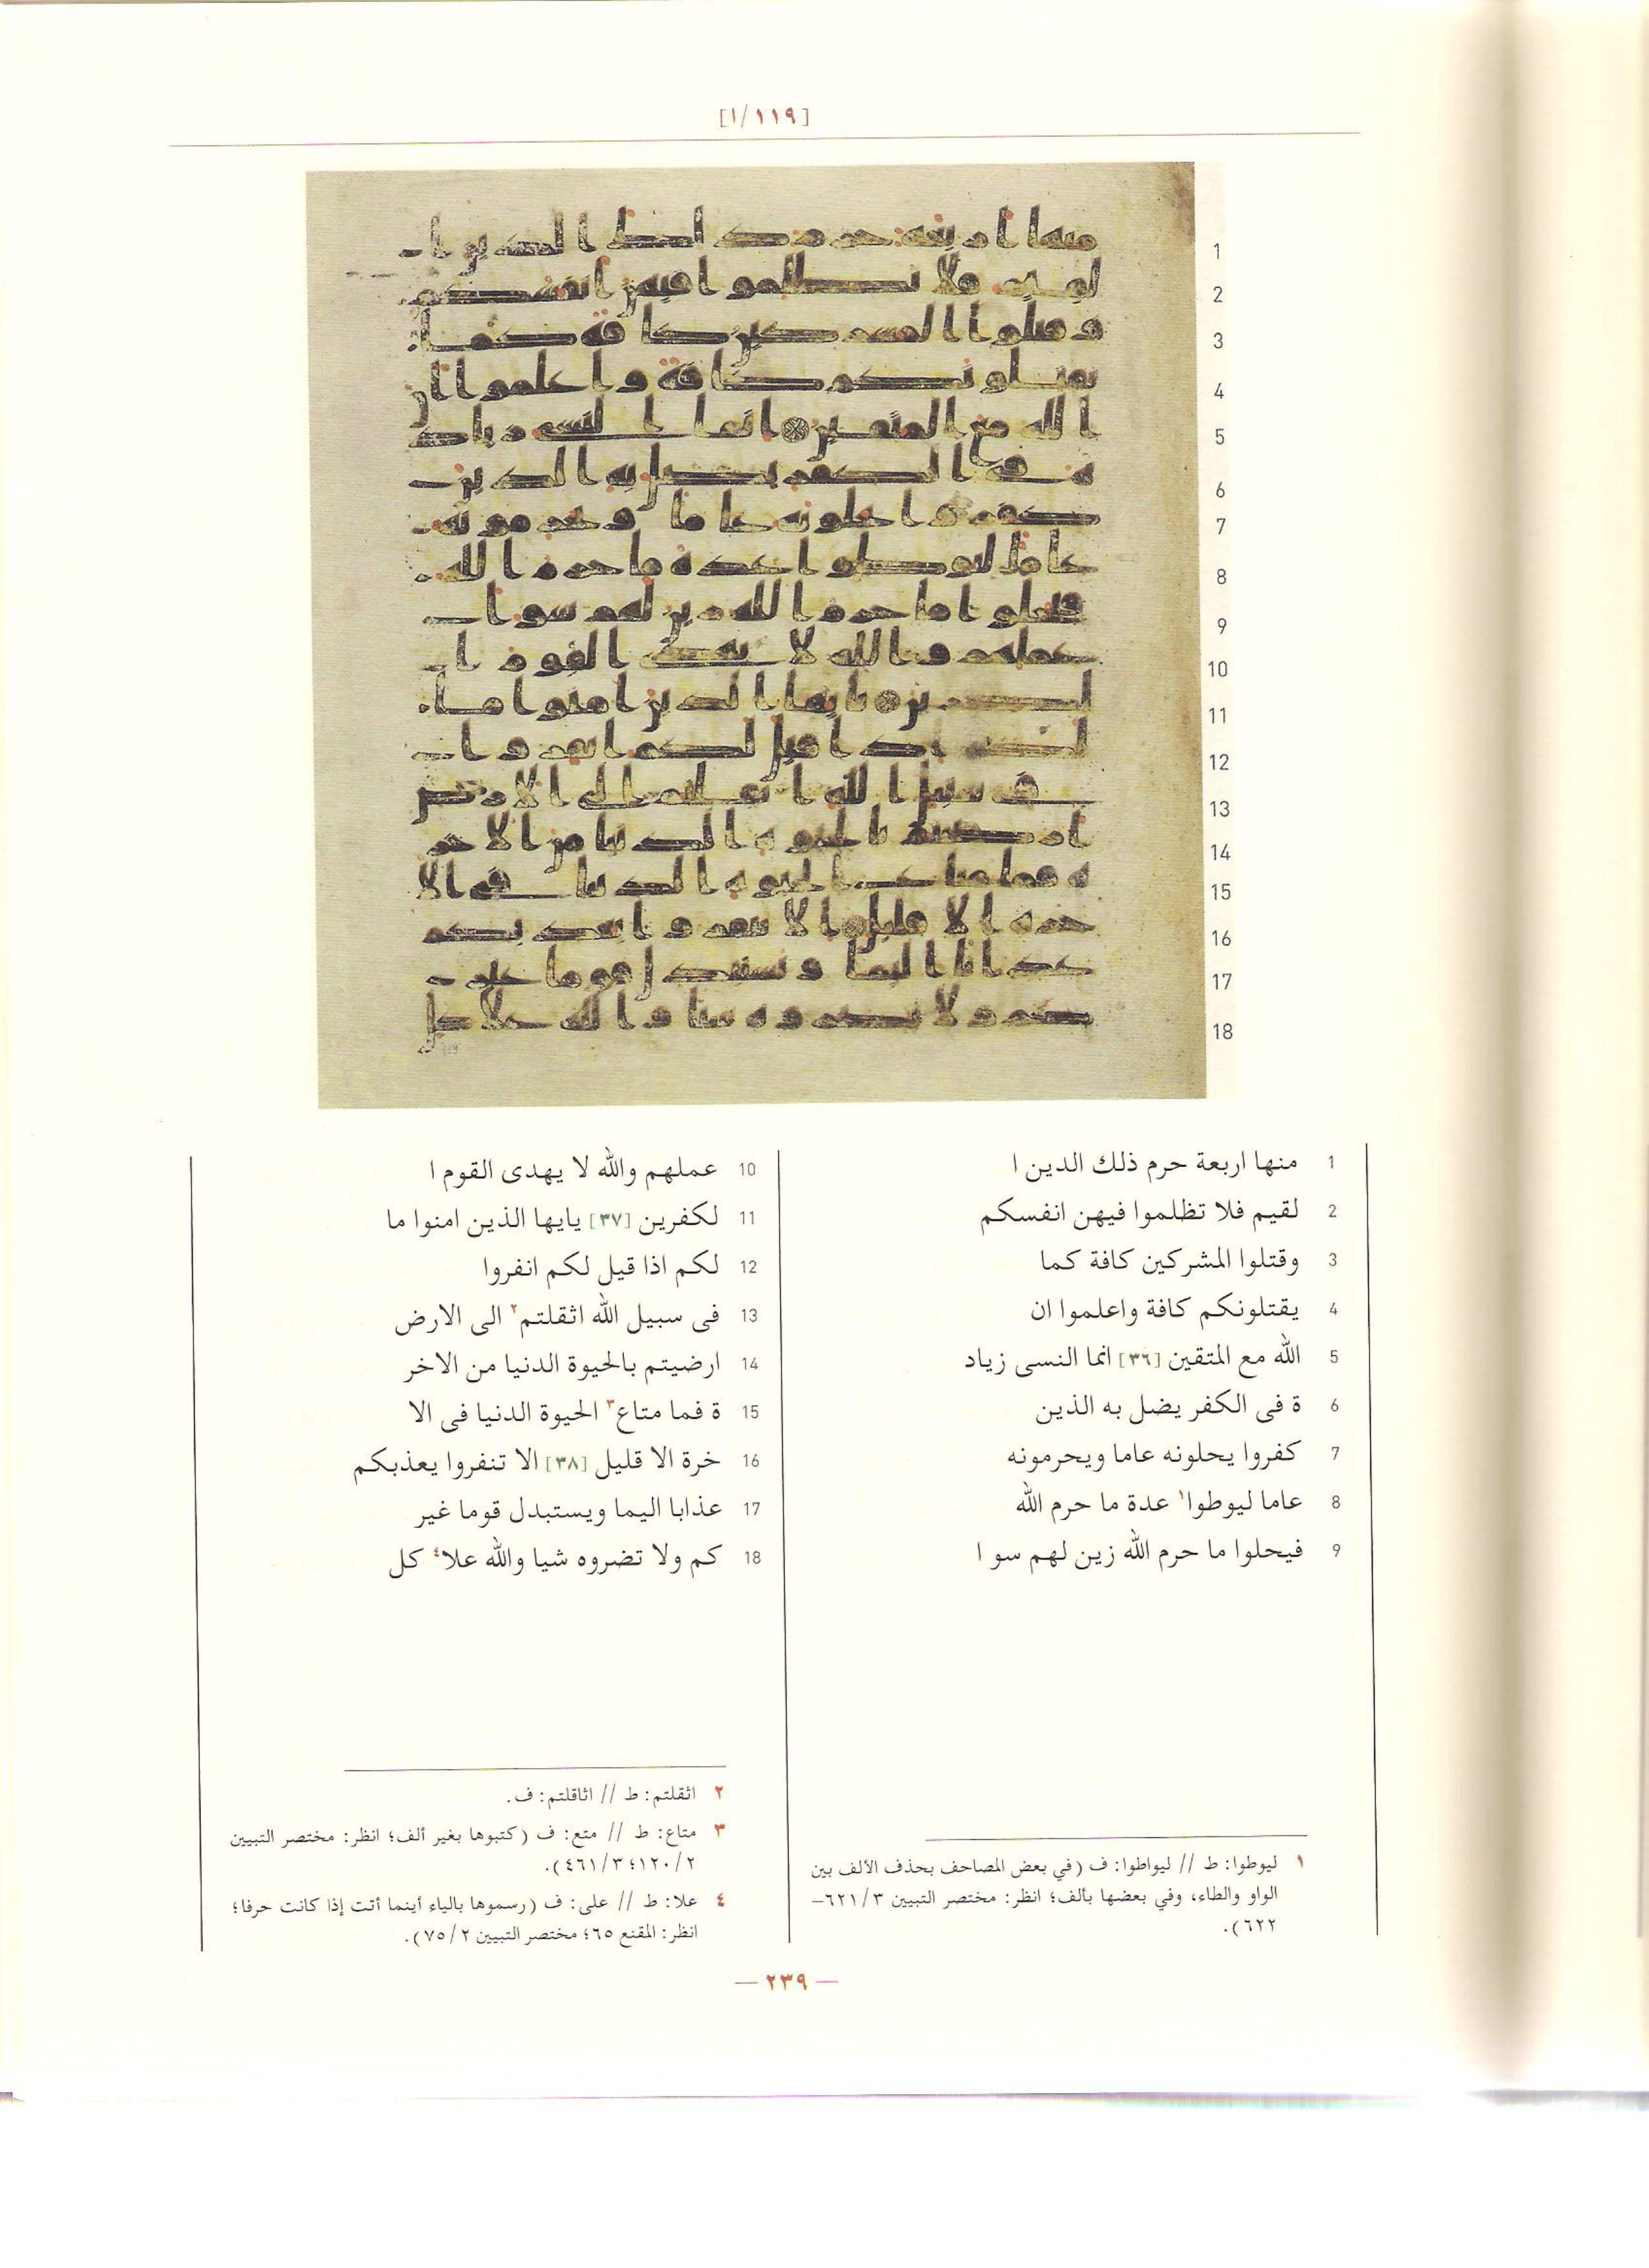 [١١٩/١]
1 منها اربعة حرم ذلك الدين ا
2 لقيم فلا تظلموا فيهن انفسكم
3 وقتلوا المشركين كافة كما
4 يقتلونكم كافة واعلموا ان
5 الله مع المتقين [٣٦] انما النسى زياد
6 ة فى الكفر يضل به الذين
7 كفروا يحلونه عاما ويحرمونه
8 عاما ليوطوا١ عدة ما حرم الله
9 فيحلوا ما حرم الله زين لهم سو ا
10 عملهم والله لا يهدى القوم ا
11 لكفرين [٣٧] يايها الذين امنوا ما
12 لكم اذا قيل لكم انفروا
13 فى سبيل الله اثقلتم٢ الى الارض
14 ارضيتم بالحيوة الدنيا من الاخر
15 ة فما متاع٣ الحيوة الدنيا فى الا
16 خرة الا قليل [٣٨] الا تنفروا يعذبكم
17 عذابا اليما ويستبدل قوما غير
18 كم ولا تضروه شيا والله علا٤ كل
١ ليوطوا: ط // ليواطوا: ف (في بعض المصاحف بحذف الألف بين
الواو والطاء، وفي بعضها بألف؛ انظر: مختصر التبيين ٦٢١/٣–
٦٢٢).
٢ اثقلتم: ط // اثاقلتم: ف.
٣ متاع: ط // متع: ف (كتبوها بغير ألف؛ انظر: مختصر التبيين
١٢٠/٢؛ ٤٦١/٣).
٤ علا: ط // على: ف (رسموها بالياء أينما أتت إذا كانت حرفا؛
انظر: المقنع ٦٥؛ مختصر التبيين ٧٥/٢).
— ٢٣٩ —